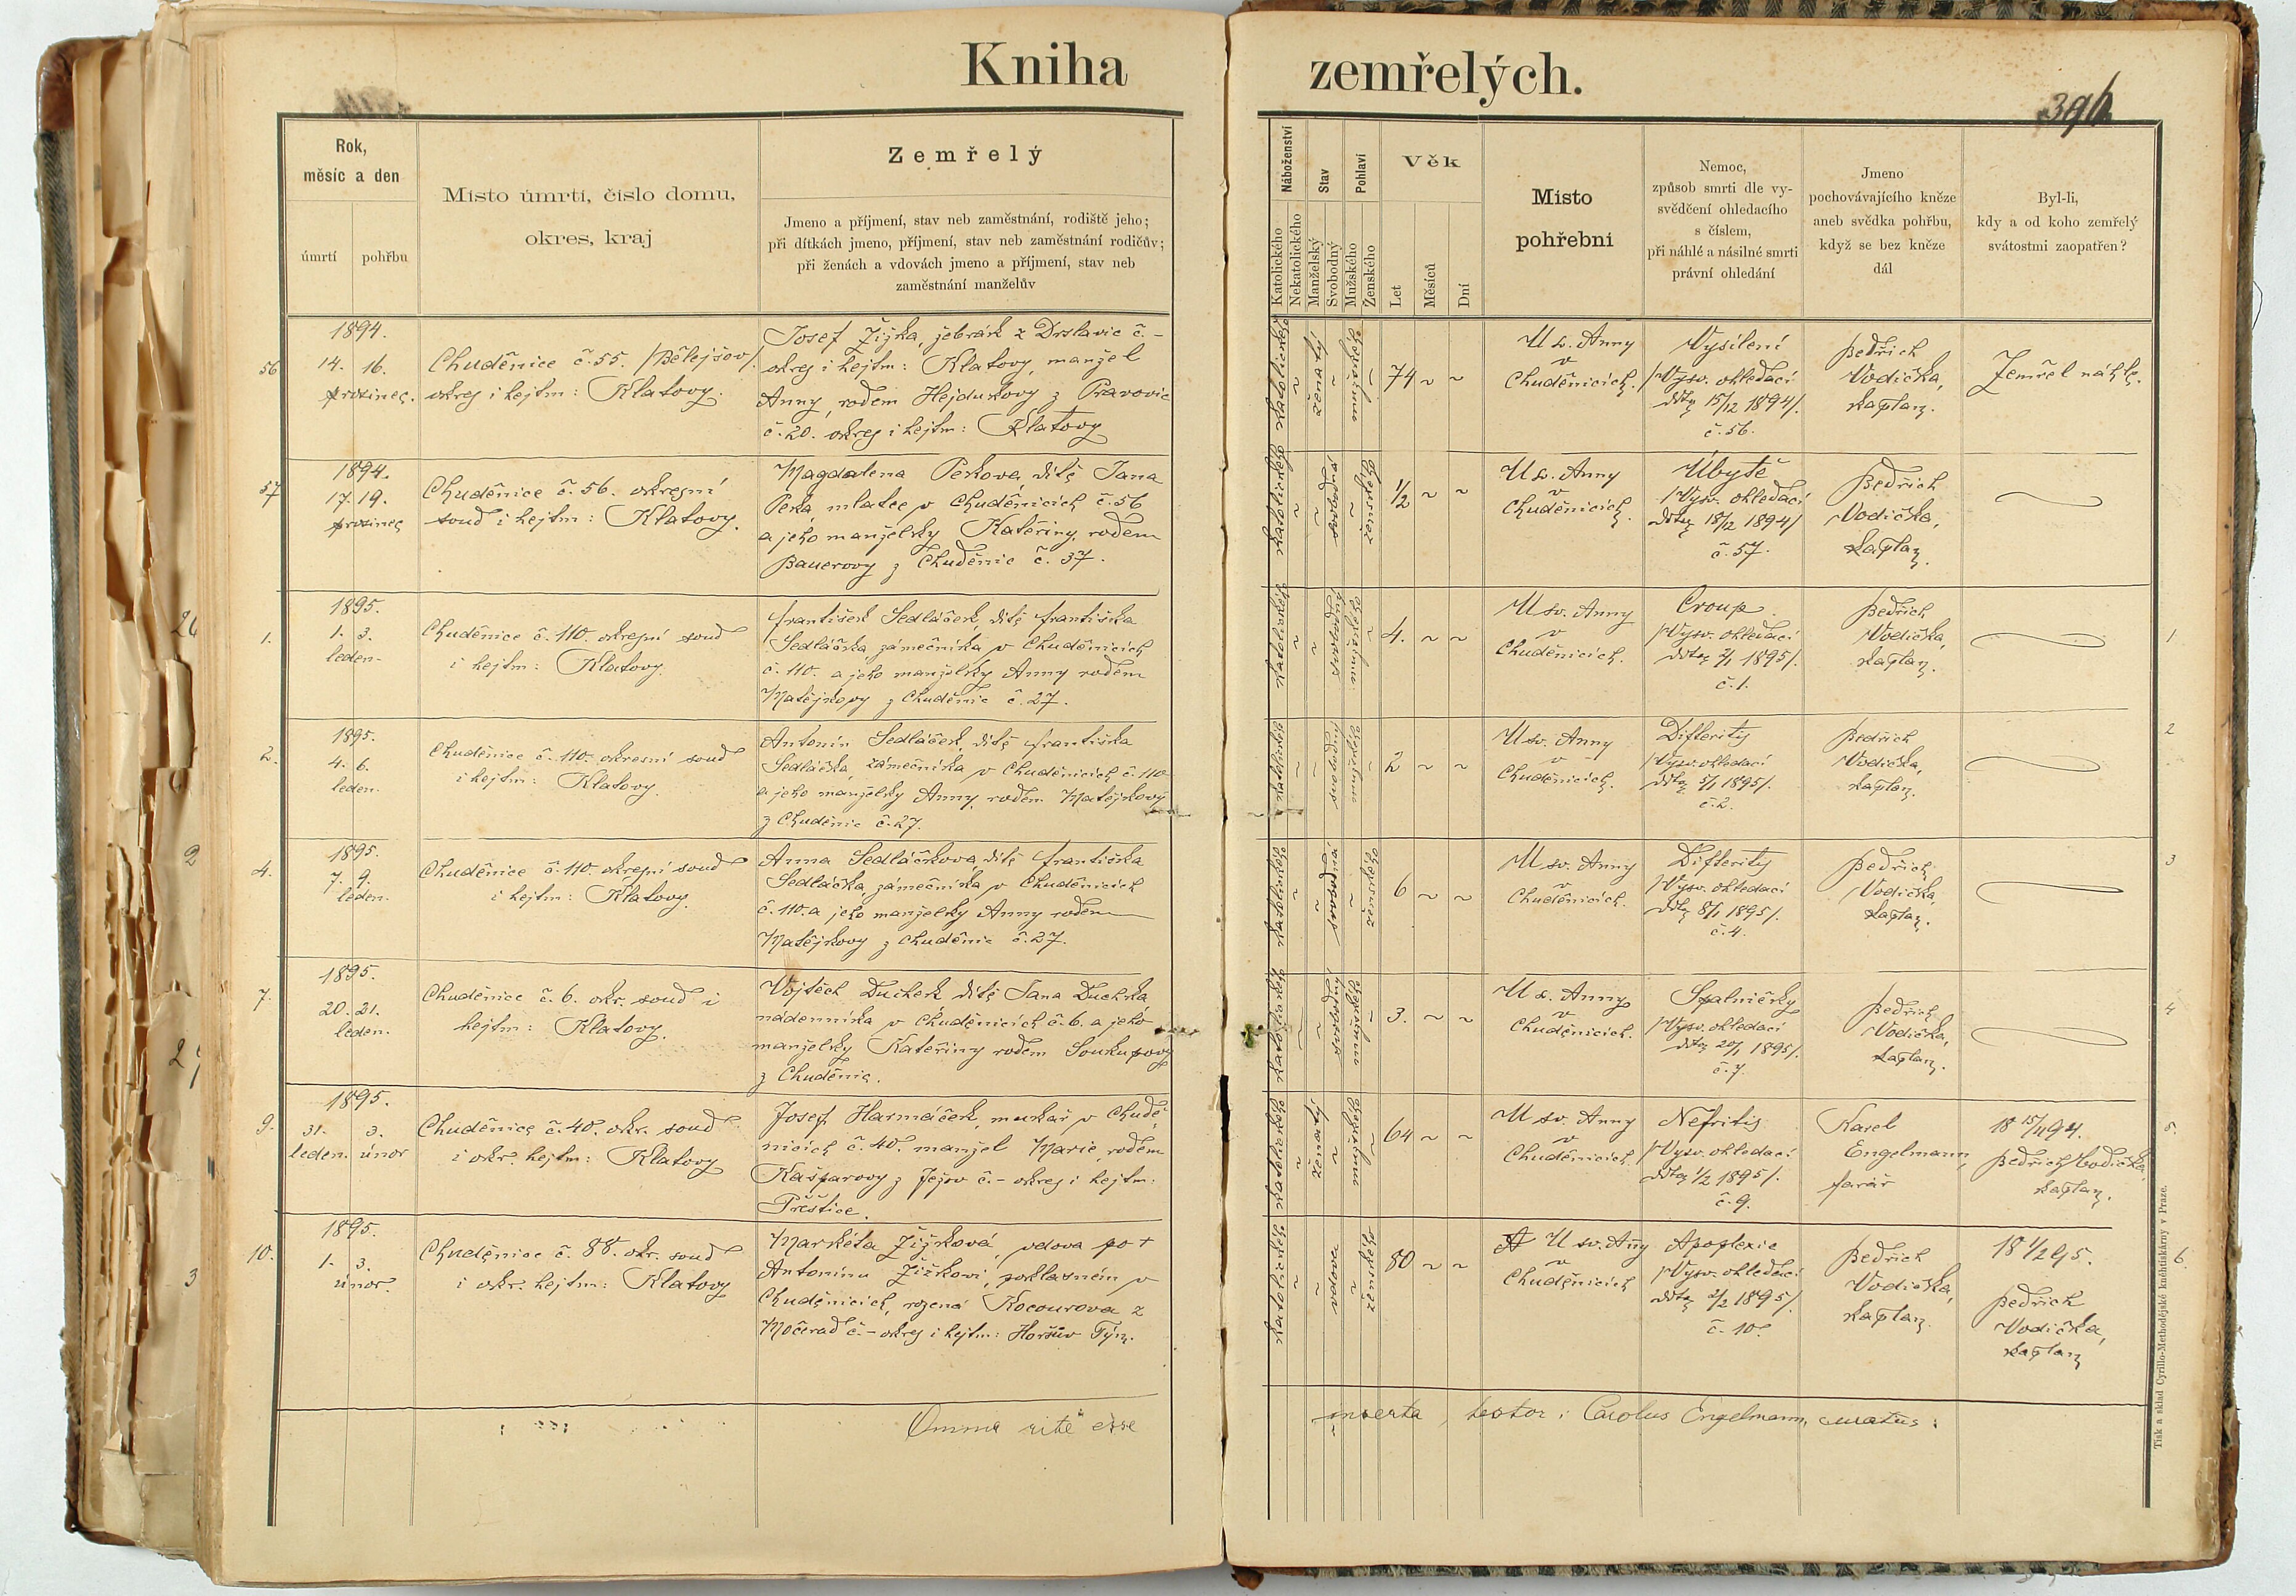 Kniha zemřelých.
396
Rok,
měsíc a den
úmrtí
pohřbu
Místo úmrtí, číslo domu,
okres, kraj
Zemřelý
Jmeno a příjmení, stav neb zaměstnání, rodiště jeho;
při dítkách jmeno, příjmení, stav neb zaměstnání rodičův;
při ženách a vdovách jmeno a příjmení, stav neb
zaměstnání manželův
Náboženství
Katolického
Nekatolického
Stav
Manželský
Svobodný
Pohlaví
Mužského
Ženského
Věk
Let
Měsíců
Dní
Místo
pohřební
Nemoc,
způsob smrti dle vy-
svědčení ohledacího
s číslem,
při náhlé a násilné smrti
právní ohledání
Jmeno
pochovávajícího kněze
aneb svědka pohřbu,
když se bez kněze
dál
Byl-li,
kdy a od koho zemřelý
svátostmi zaopatřen?
56
1894.
14. 16.
prosinec.
Chuděnice č. 55. /Bělejšov/.
okres i hejtm: Klatovy.
Josef Žižka, žebrák z Drslavic č. -
okres i hejtm: Klatovy, manžel
Anny, rodem Hejdukovy z Pravovic
č. 20. okres i hejtm: Klatovy
katolického
ženatý
mužského
74 ~ ~
U sv. Anny
v
Chuděnicích.
Vysílení
/Vysv. ohledací
dtto 15/12 1894/.
č. 56.
Bedřich
Vodička,
kaplan.
Zemřel náhle.
57
1894.
17. 19.
prosinec
Chuděnice č. 56. okresní
soud i hejtm: Klatovy.
Magdalena Pekova, dítě Jana
Peka mlatce v Chuděnicích č. 56
a jeho manželky Kateřiny, rodem
Bauerovy z Chuděnic č. 37.
katolického
svobodná
ženského
1/2 ~ ~
U sv. Anny
v
Chuděnicích.
Úbytě
/Vysv. ohledací
dtto 18/12 1894/
č. 57.
Bedřich
Vodička,
kaplan.
1.
1895.
1. 3.
leden.
Chuděnice č. 110. okresní soud
i hejtm: Klatovy.
František Sedláček, dítě Františka
Sedláčka, zámečníka v Chuděnicích
č. 110. a jeho manželky Anny rodem
Matějkovy z Chuděnic č. 27.
katolického
svobodný
mužského
4. ~ ~
U sv. Anny
v
Chuděnicích.
Croup.
/Vysv. ohledací
dtto 2/1 1895/.
č. 1.
Bedřich
Vodička,
kaplan.
1
2.
1895.
4. 6.
leden.
Chuděnice č. 110. okresní soud
i hejtm: Klatovy.
Antonín Sedláček, dítě Františka
Sedláčka, zámečníka v Chuděnicích č. 110
a jeho manželky Anny, rodem Matějkovy
z Chuděnic č. 27.
katolického
svobodný
mužského
2 ~ ~
U sv. Anny
v
Chuděnicích.
Difterity
/Vysv. ohledací
dtto 5/1 1895/.
č. 2.
Bedřich
Vodička,
kaplan.
2
4.
1895.
7. 9.
leden.
Chuděnice č. 110. okresní soud
i hejtm: Klatovy.
Anna Sedláčkova, dítě Františka
Sedláčka, zámečníka v Chuděnicích
č. 110. a jeho manželky Anny rodem
Matějkovy z Chuděnic č. 27.
katolického
svobodná
ženského
6 ~ ~
U sv. Anny
v
Chuděnicích.
Difterity
/Vysv. ohledací
dtto 8/1 1895/.
č. 4.
Bedřich
Vodička
kaplan.
3
7.
1895.
20. 21.
leden.
Chuděnice č. 6. okr. soud i
hejtm: Klatovy.
Vojtěch Duchek dítě Jana Duchka
nádenníka v Chuděnicích č. 6. a jeho
manželky Kateřiny rodem Soukupovy
z Chuděnic.
katolického
svobodný
mužského
3. ~ ~
U sv. Anny
v
Chuděnicích.
Spalničky
/Vysv. ohledací
dtto 20/1 1895/.
č. 7.
Bedřich
Vodička,
kaplan.
4
9.
1895.
31. 3.
leden. únor
Chuděnice č. 40. okr. soud
i okr. hejtm: Klatovy
Josef Harmáček, murkař v Chudě-
nicích č. 40. manžel Marie, rodem
Kašparovy z Ježov č. - okres i hejtm:
Přeštice.
katolického
ženatý
mužského
64 ~ ~
U sv. Anny
v
Chuděnicích.
Nefritis
/Vysv. ohledací
dtto 1/2 1895/.
č. 9.
Karel
Engelmann,
farář
18 15/11 94.
Bedřich Vodička
kaplan.
5.
10.
1895.
1. 3.
únor.
Chuděnice č. 88. okr. soud
i okr. hejtm: Klatovy
Markéta Žižková, vdova po +
Antonínu Žižkovi, poklasném v
Chuděnicích, rozená Kocourova z
Močerad č. - okres i hejtm: Horšův Týn.
katolického
vdova
ženského
80 ~ ~
U sv. Anny
v
Chuděnicích
Apoplexie
/Vysv. ohledací
dtto 2/2 1895/.
č. 10.
Bedřich
Vodička,
kaplan.
18 1/2 95.
Bedřich
Vodička,
kaplan
6
Omnia rite esse inserta, testor: Carolus Engelmann, curatus:
Tisk a sklad Cyrillo-Methodějské knihtiskárny v Praze.